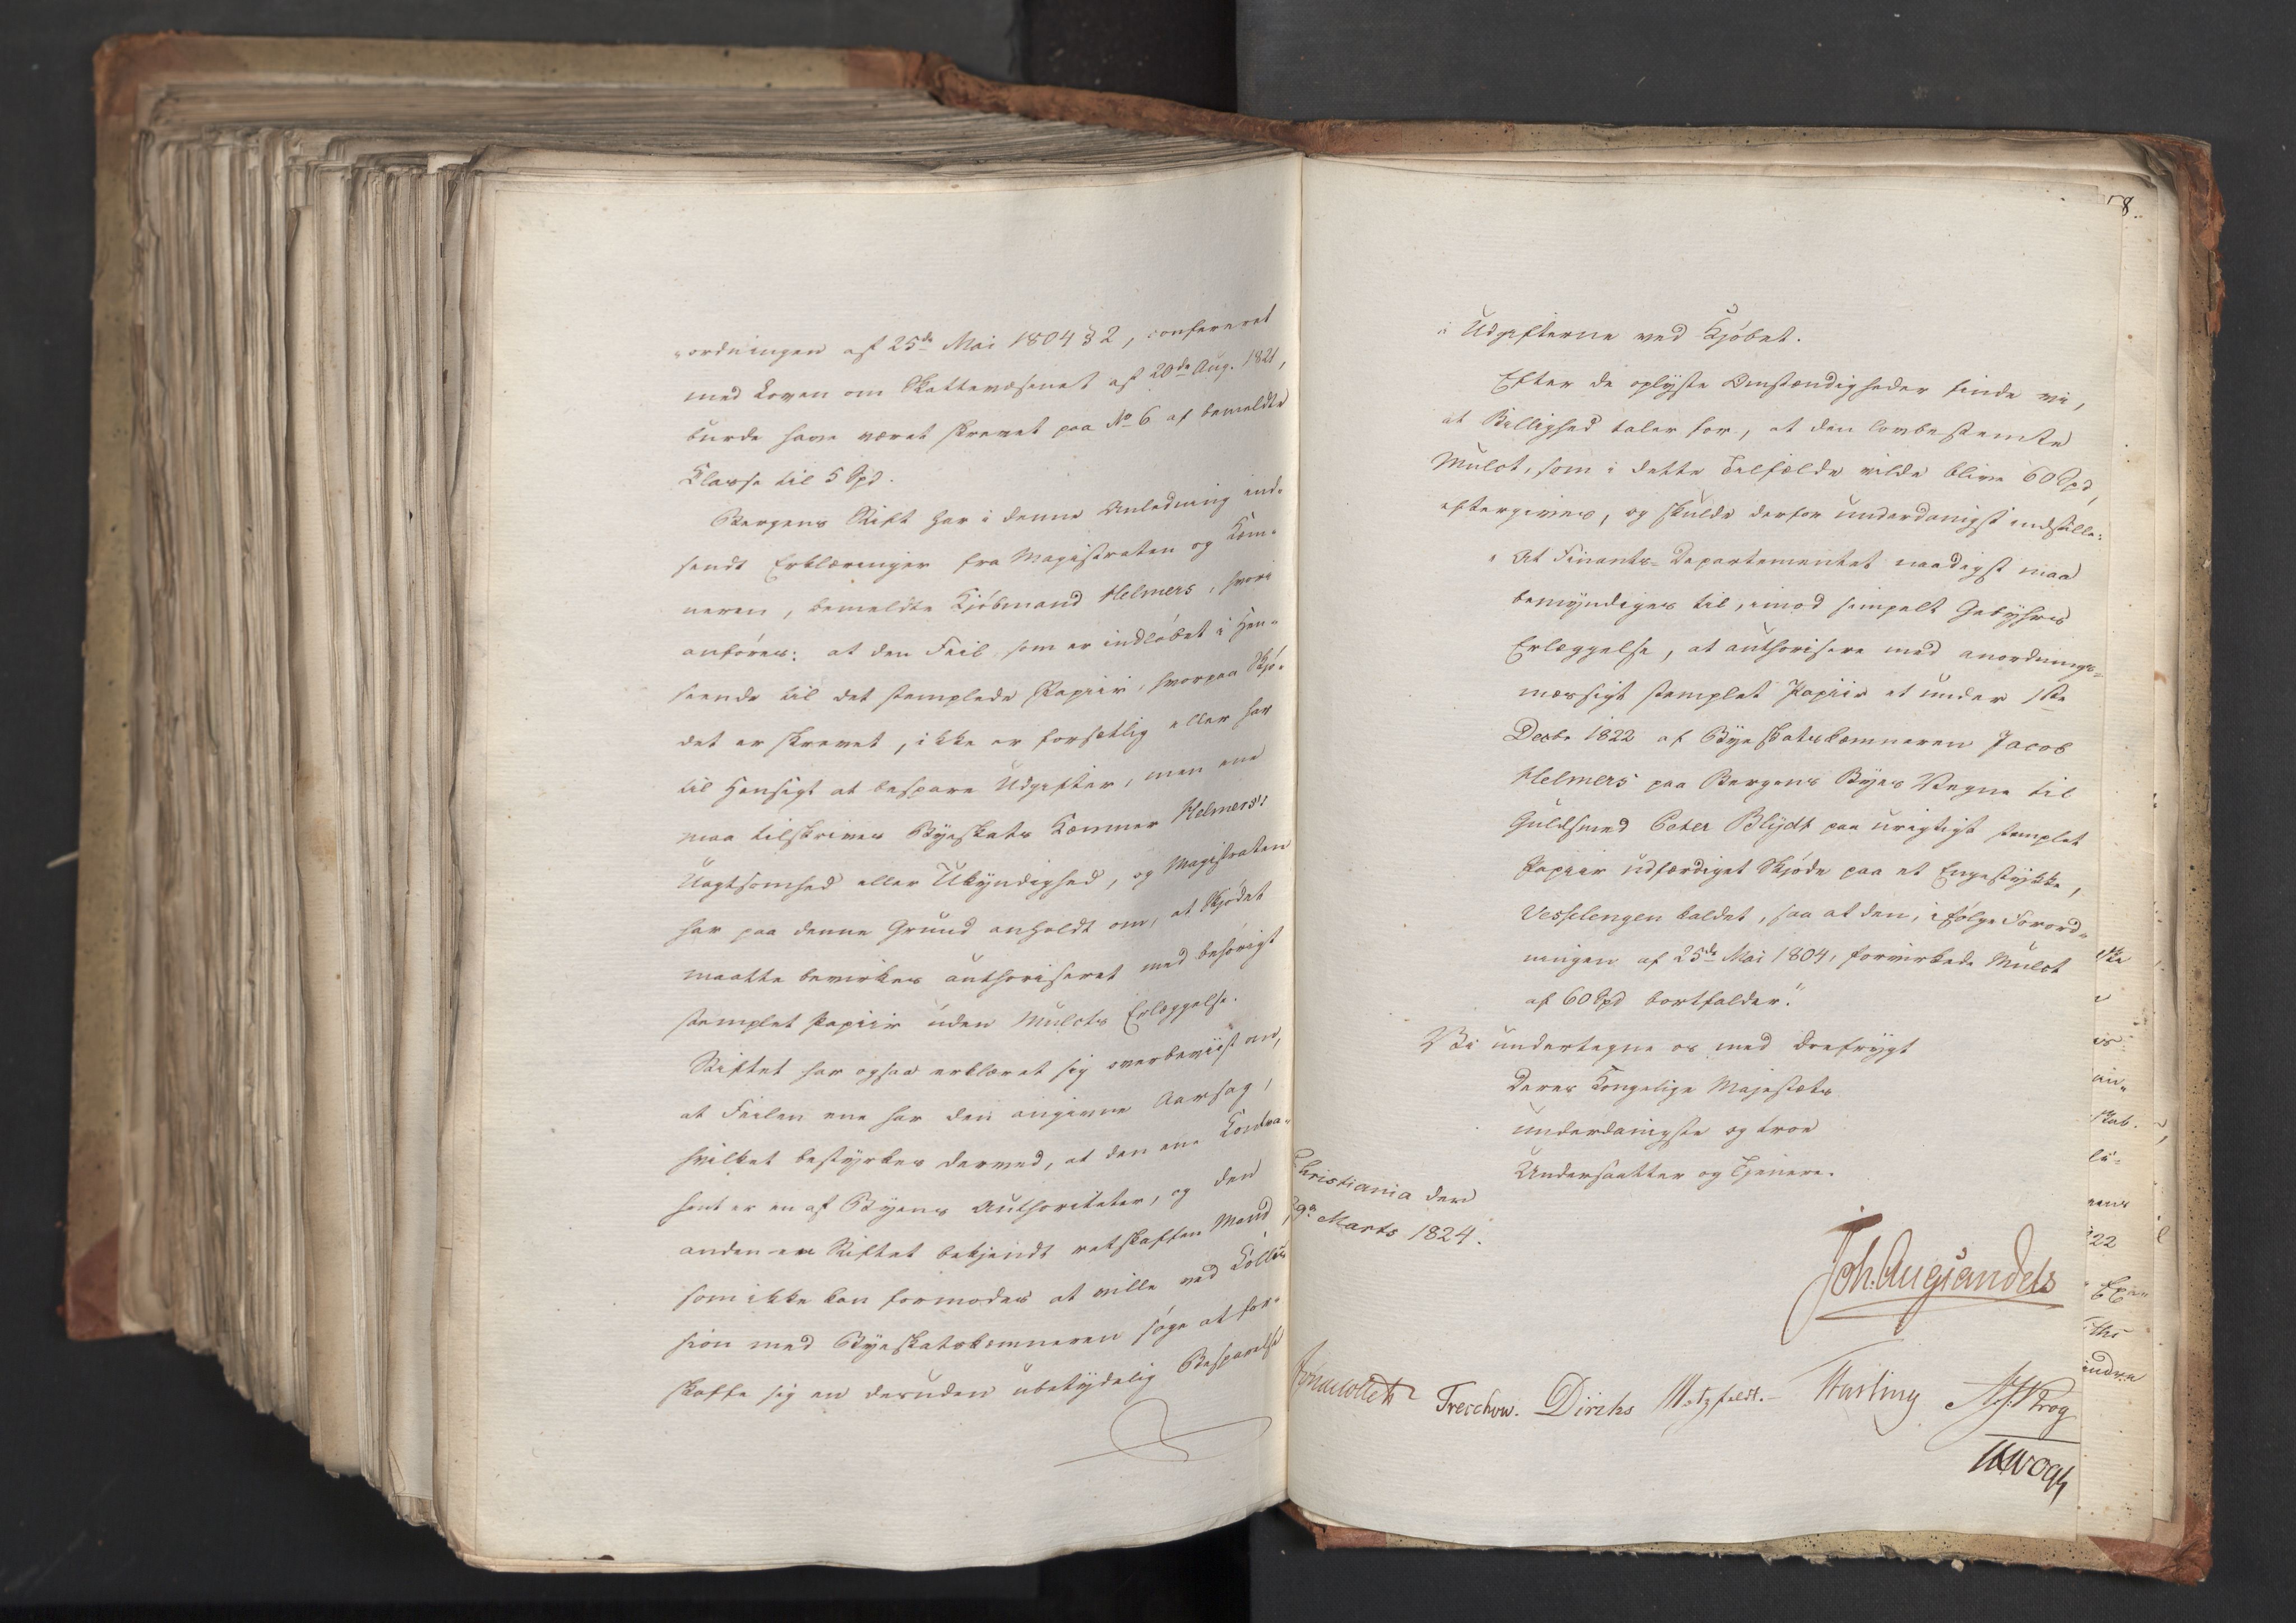 „ordningen af 25de Mai 1804 § 2, confereret
med Loven om Skattevæsenet af 20de Aug. 1821,
burde have været skrevet paa No 6 af bemeldte
Classe til 5 Spd.
Bergens Stift har i denne Anledning ind-
sendt Erklæringer fra Magistraten og Kæm-
neren, bemeldte Kjöbmand Helmers, hvori
anföres: at den Feil, som er indlöbet i Hen-
seende til det stemplede Papiir, hvorpaa Skjö-
det er skrevet, ikke er forsætlig eller har
til Hensigt at bespare Udgifter, men ene
maa tilskrives Byeskats Kæmner Helmers's
Uagtsomhed eller Ukyndighed, og Magistraten
har paa denne Grund anholdt om, at Skjödet
maatte bevirkes authoriseret med behörigt
stemplet Papiir uden Mulcts Erlæggelse.
Stiftet har ogsaa erklæret sig overbeviist om,
at Feilen ene har den angivne Aarsag,
hvilket bestyrkes derved, at den ene Contra-
hent er en af Byens Authoriteter, og den
anden en Stiftet bekjendt retskaffen Mand,
som ikke kan formodes at ville ved Collu-
sion med Byeskatskæmneren söge at for-
skaffe sig en desuden ubetydelig Besparelse
8.
i Udgifterne ved Kjöbet.
Efter de oplyste Omstændigheder finde vi,
at Billighed taler for, at den lovbestemte
Mulct, som i dette Tilfælde vilde blive 60 Spd,
eftergives, og skulde derfor underdanigst indstille:
„At Finants-Departementet naadigst maa
bemyndiges til, imod simpelt Gebyhrs
Erlæggelse, at authorisere med anordnings-
mæssigt stemplet Papiir et under 1ste
Decbr 1822 af Byeskatskæmneren Jacob
Helmers paa Bergens Byes Vegne til
Guldsmed Peter Blydt paa urigtigt stemplet
Papiir udfærdiget Skjöde paa et Engestykke,
Vesselengen kaldet, saa at den, ifölge Forord-
ningen af 25de Mai 1804, forvirkede Mulct
af 60 Spd bortfalder."
Vi undertegne os med Ærefrygt
Deres Kongelige Majestæts
underdanigste og troe
Undersaatter og Tjenere.
Christiania den
Marts 1824.
Joh. Aug Sandels
Jonas Collett
Treschow. Diriks Motzfeldt. Fasting P. J. Krog